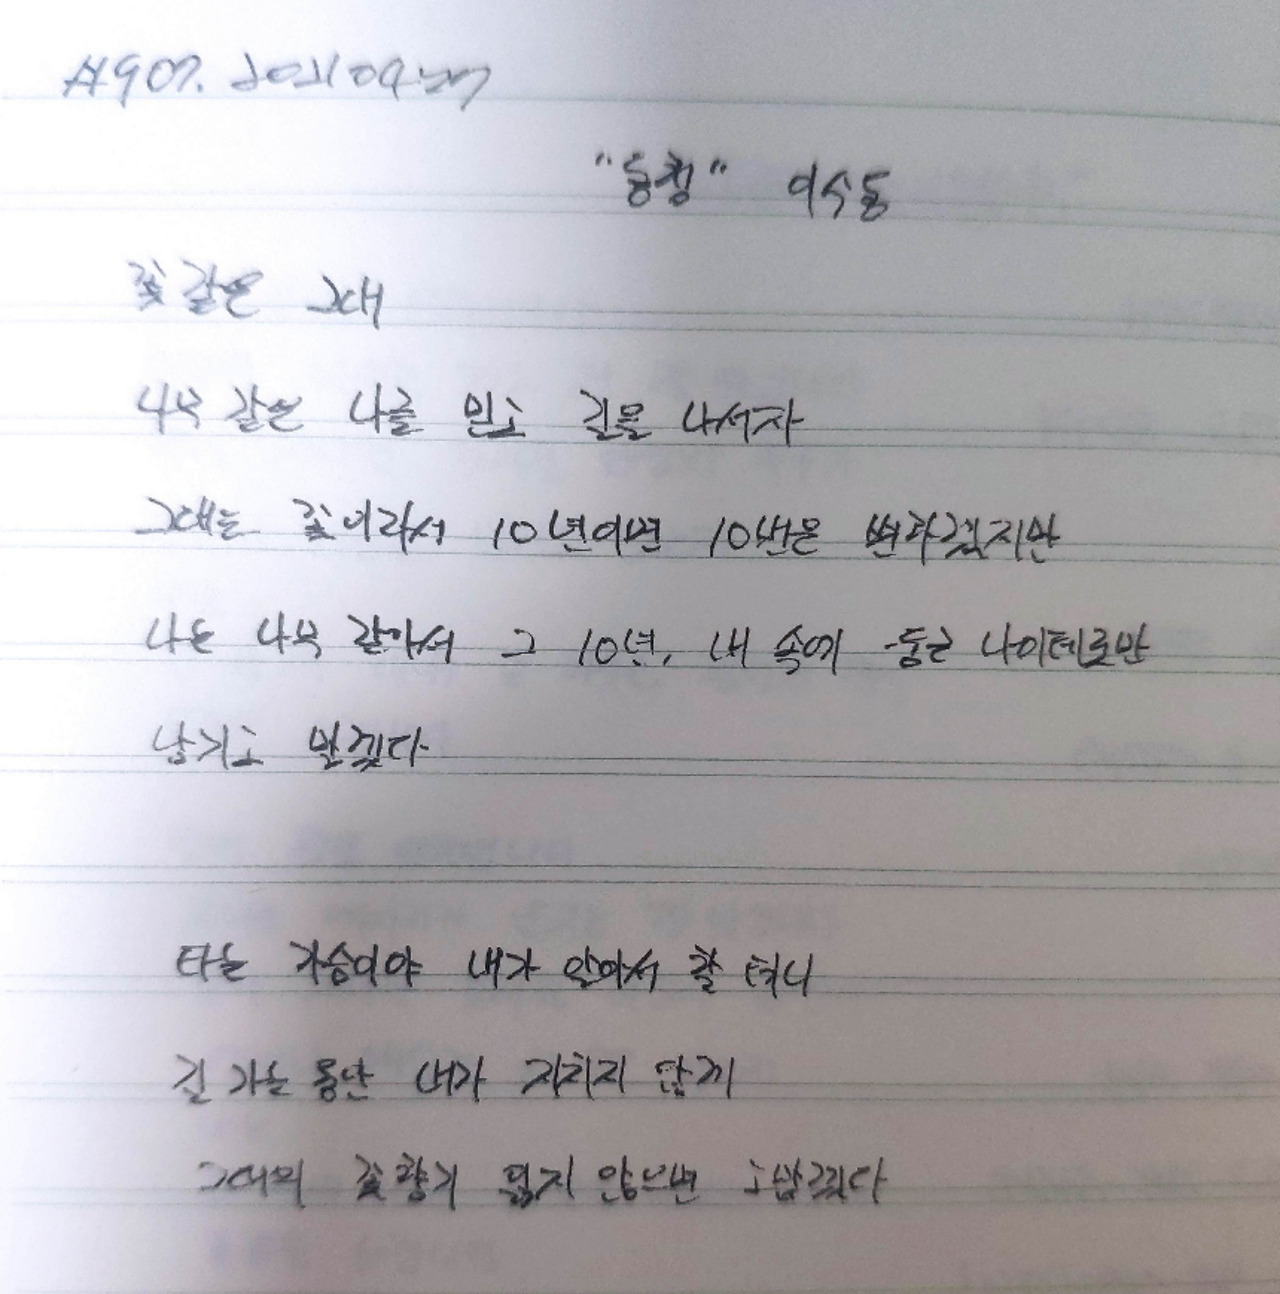 #907. 20210425
"동행" 이수동
꽃 같은 그대
나무 같은 나를 믿고 길을 나서자
그대는 꽃이라서 10년이면 10번은 변하겠지만
나는 나무 같아서 그 10년, 내 속에 둥근 나이테로만
남기고 말겠다
타는 가슴이야 내가 알아서 할 테니
길 가는 동안 내가 지치지 않게
그대의 꽃향기 잃지 않으면 고맙겠다